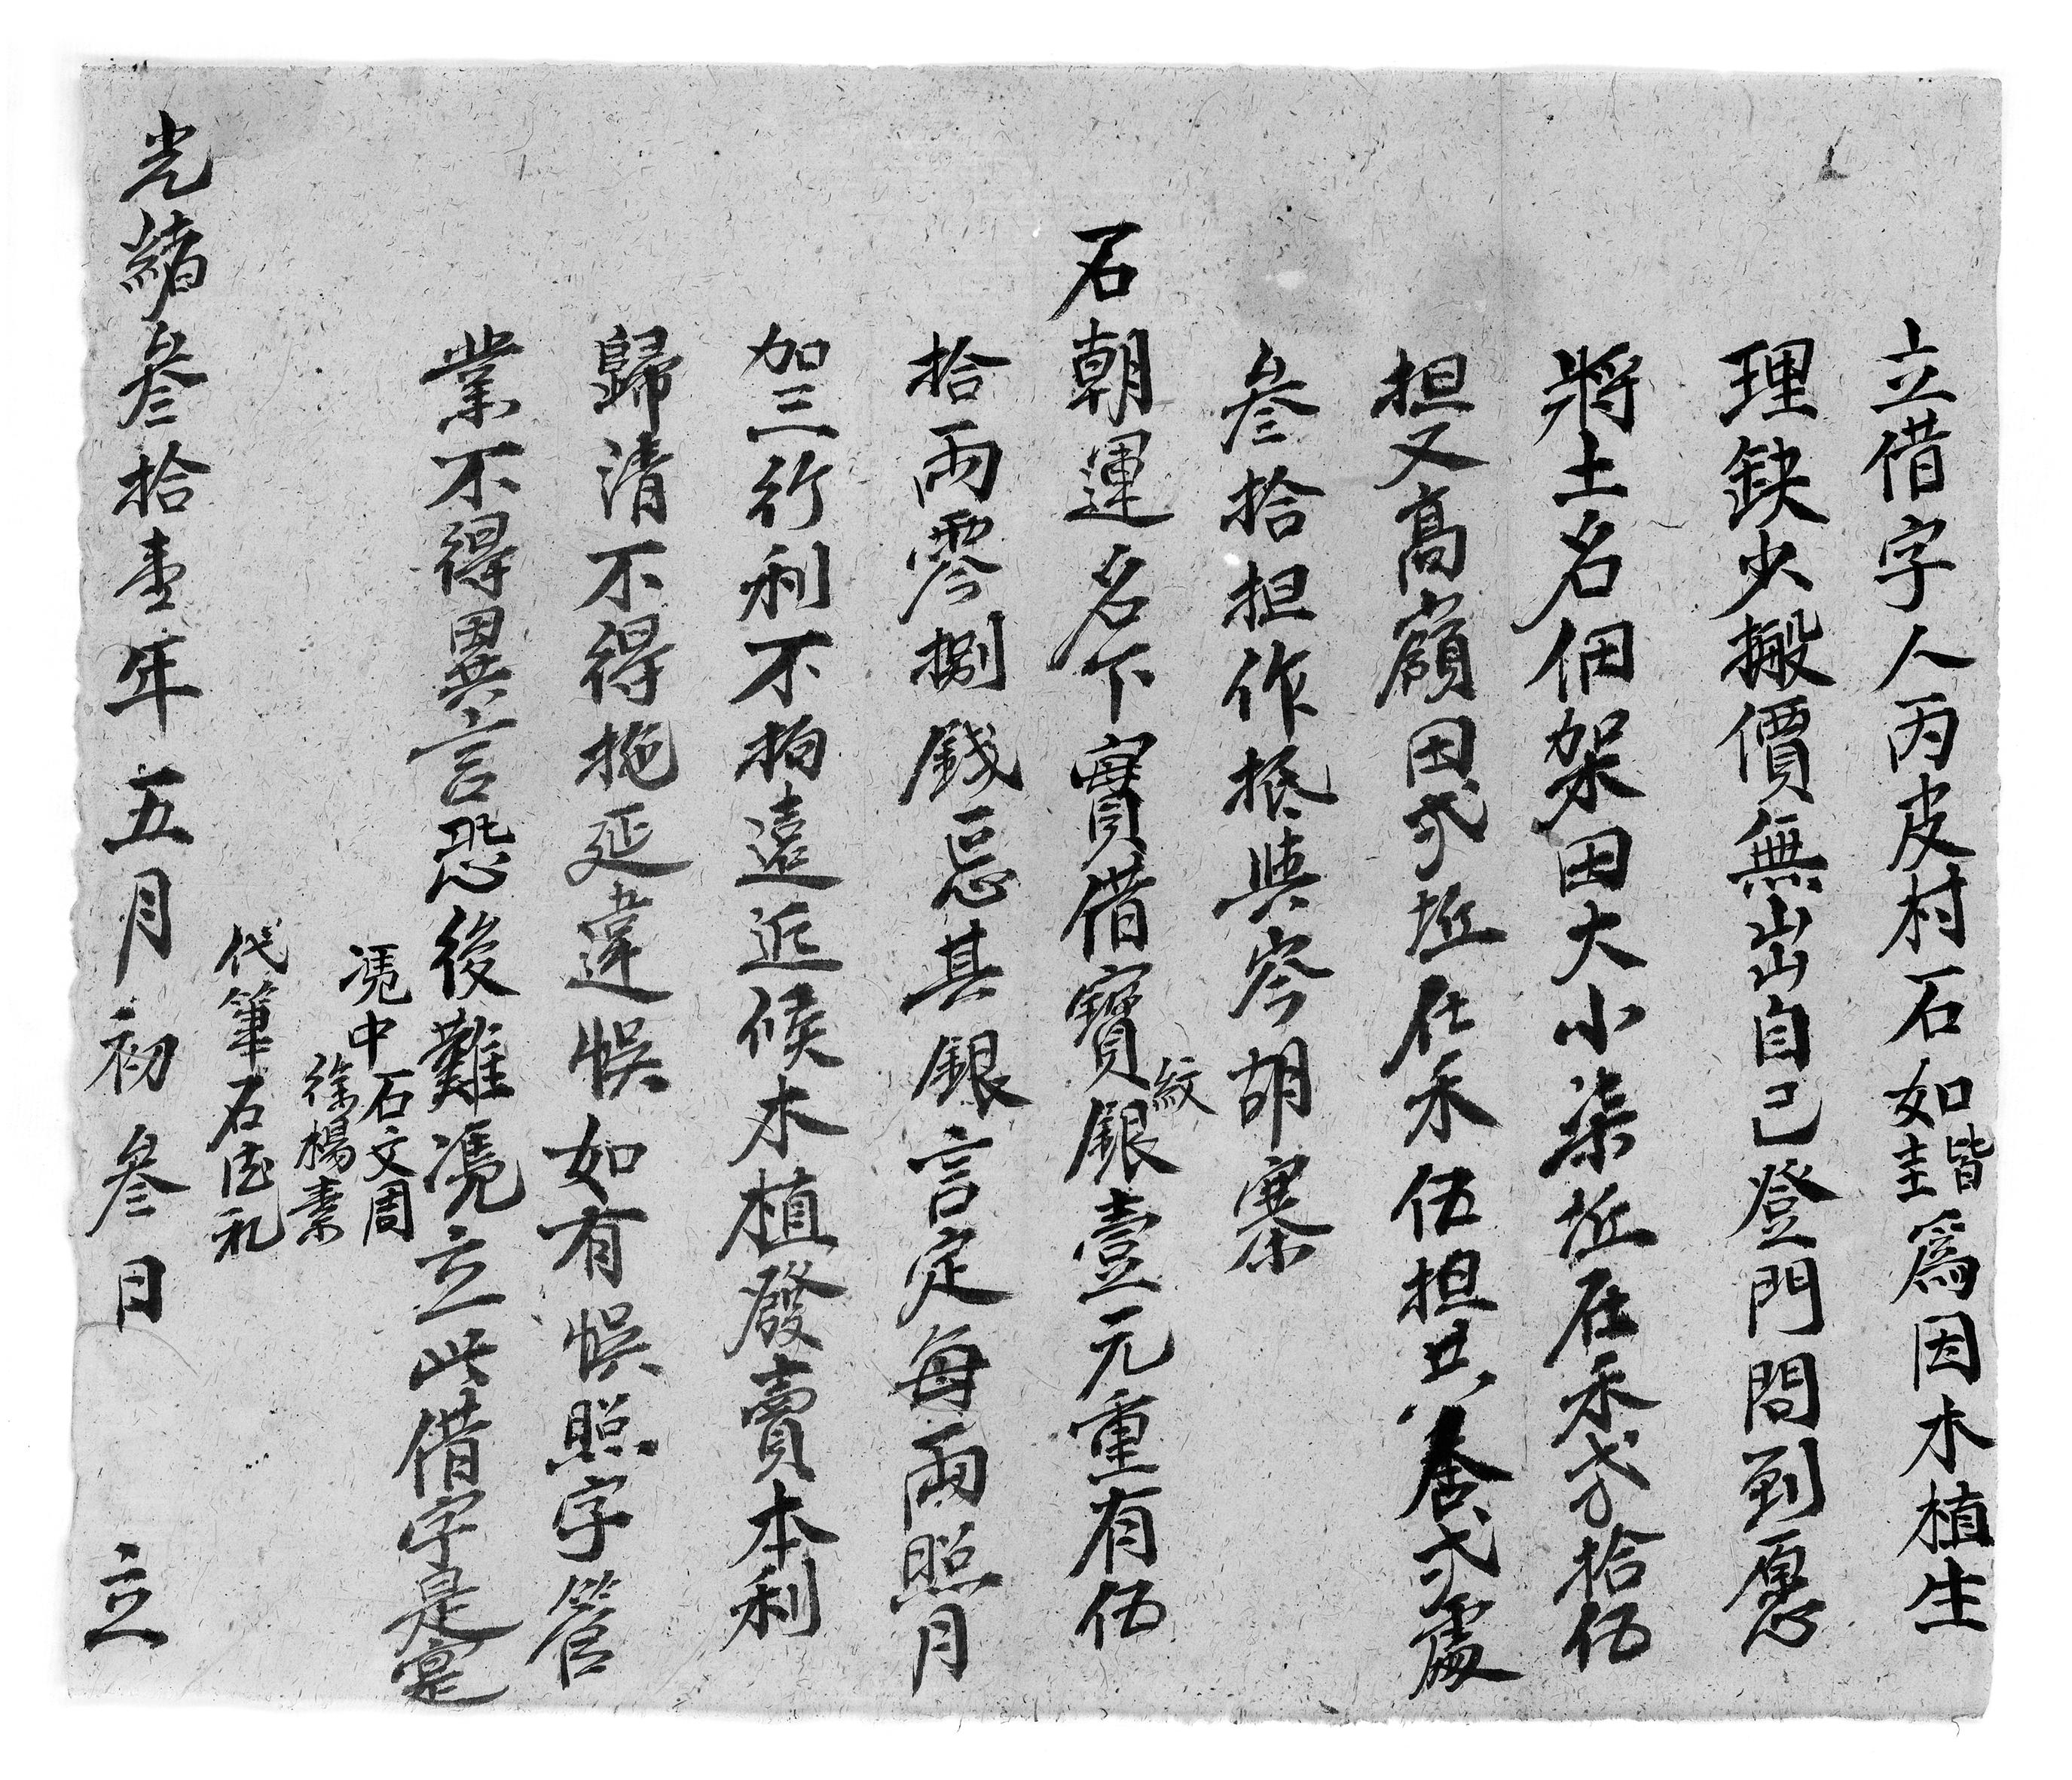 立借字人丙皮村石如皆圭為因木植生
理缺少搬價無出自己登門問到愿
將土名佃架田大小柒坵在禾弍拾伍
担又高嶺田弍坵在禾伍担共叁弍處
叁拾担作抵與岑胡寨
石朝運名下實借寶紋銀壹元重有伍
拾両零捌錢忌其銀言定每両照月
加三行利不拘遠近候木植發賣本利
歸清不得拖延違悞如有悞照字管
業不得異言恐後難憑立此借字是寔
憑中石文周
徐楊素
代筆石法礼
光緒叁拾壹年五月初叁日 立